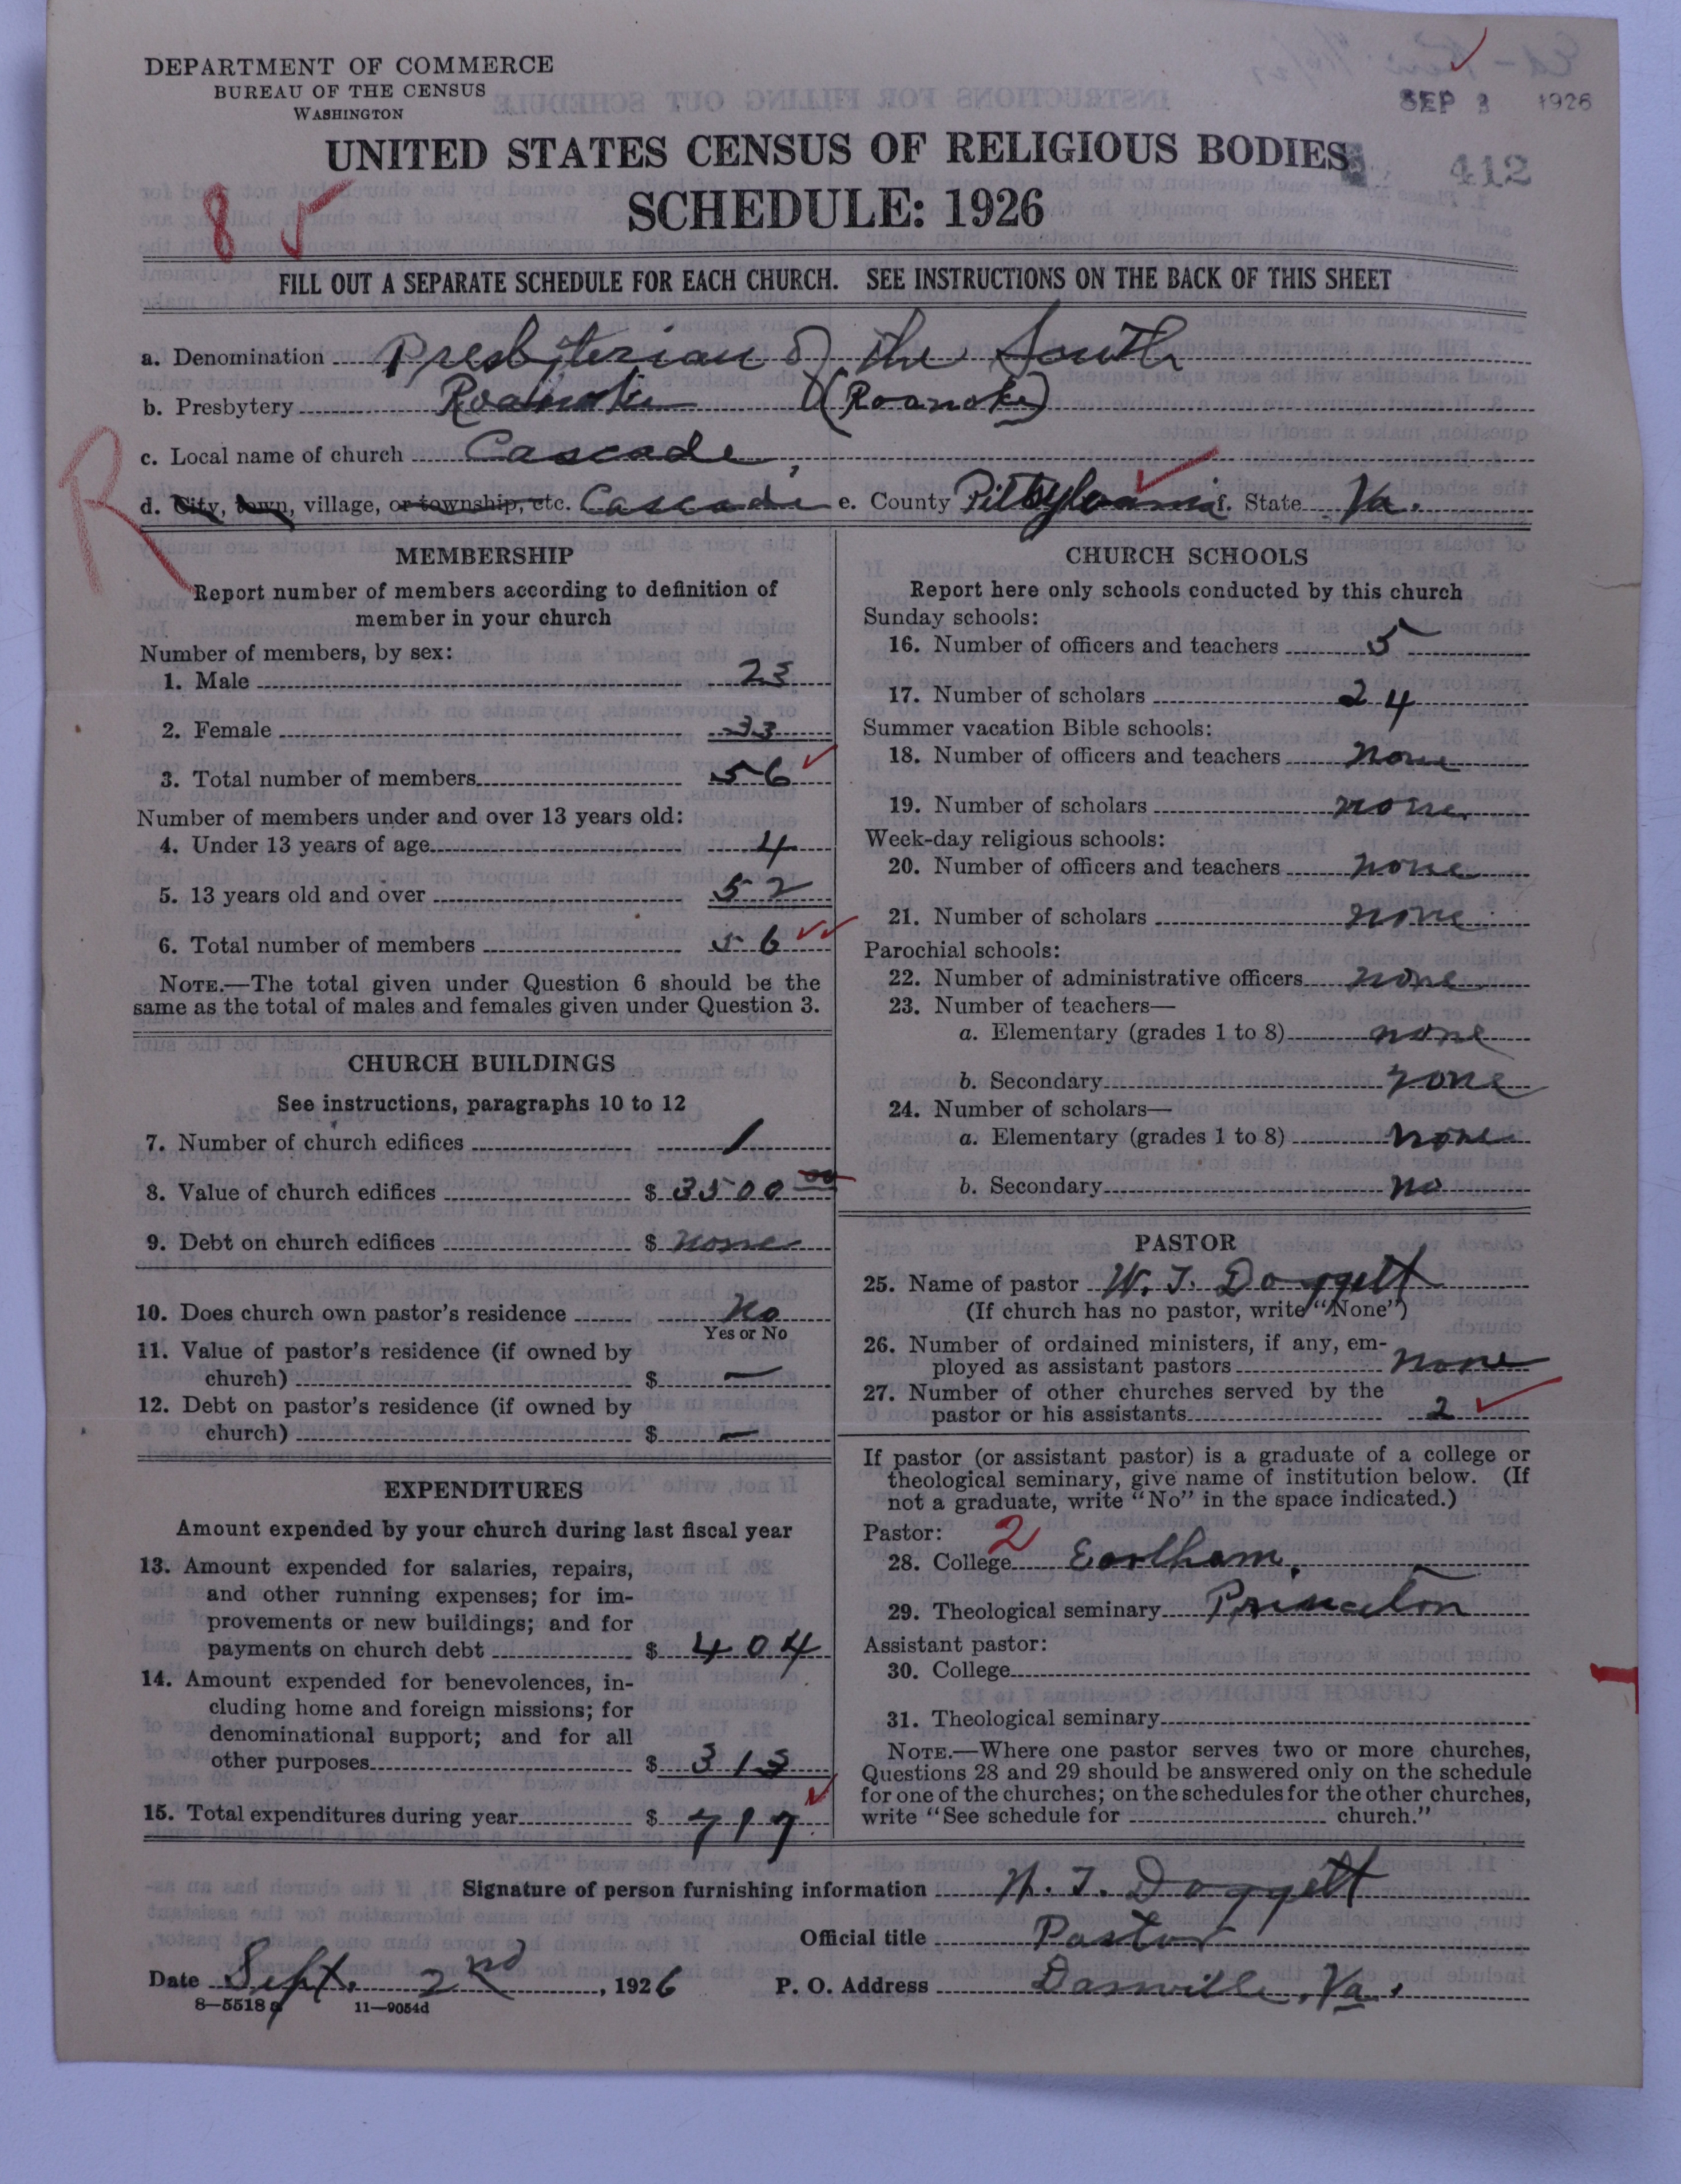 DEPARTMENT OF COMMERCE
BUREAU OF THE CENSUS
WASHINGTON
SEP 3 1926
UNITED STATES CENSUS OF RELIGIOUS BODIES
412
SCHEDULE: 1926
8
FILL OUT A SEPARATE SCHEDULE FOR EACH CHURCH. SEE INSTRUCTIONS ON THE BACK OF THIS SHEET
a. Denomination Presbyterian of the South
b. Presbytery Roanoke (Roanoke)
c. Local name of church Cascade,
R
d. City, town, village, or township, etc. Cascade e. County Pittsylvania f. State Va.
MEMBERSHIP
Report number of members according to definition of
member in your church
Number of members, by sex:
1. Male 23
2. Female 33
3. Total number of members 56
Number of members under and over 13 years old:
4. Under 13 years of age 4
5. 13 years old and over 52
6. Total number of members 56
NOTE.—The total given under Question 6 should be the
same as the total of males and females given under Question 3.
CHURCH BUILDINGS
See instructions, paragraphs 10 to 12
7. Number of church edifices 1
8. Value of church edifices $ 3500 00
9. Debt on church edifices $ none
10. Does church own pastor's residence No
Yes or No
11. Value of pastor's residence (if owned by
church) $ —
12. Debt on pastor's residence (if owned by
church) $ —
EXPENDITURES
Amount expended by your church during last fiscal year
13. Amount expended for salaries, repairs,
and other running expenses; for im-
provements or new buildings; and for
payments on church debt $ 404
14. Amount expended for benevolences, in-
cluding home and foreign missions; for
denominational support; and for all
other purposes $ 313
15. Total expenditures during year $ 717
CHURCH SCHOOLS
Report here only schools conducted by this church
Sunday schools:
16. Number of officers and teachers 5
17. Number of scholars 24
Summer vacation Bible schools:
18. Number of officers and teachers none
19. Number of scholars none
Week-day religious schools:
20. Number of officers and teachers none
21. Number of scholars none
Parochial schools:
22. Number of administrative officers none
23. Number of teachers—
a. Elementary (grades 1 to 8) none
b. Secondary none
24. Number of scholars—
a. Elementary (grades 1 to 8) none
b. Secondary no
PASTOR
25. Name of pastor W. T. Doggett
(If church has no pastor, write "None")
26. Number of ordained ministers, if any, em-
ployed as assistant pastors none
27. Number of other churches served by the
pastor or his assistants 2
If pastor (or assistant pastor) is a graduate of a college or
theological seminary, give name of institution below. (If
not a graduate, write "No" in the space indicated.)
Pastor: 2
28. College Earlham.
29. Theological seminary Princeton
Assistant pastor:
30. College
31. Theological seminary
NOTE.—Where one pastor serves two or more churches,
Questions 28 and 29 should be answered only on the schedule
for one of the churches; on the schedules for the other churches,
write "See schedule for church."
Signature of person furnishing information W. T. Doggett
Official title Pastor
Date Sept. 2nd, 1926 P. O. Address Danville, Va.
8—5518 g 11—9054d